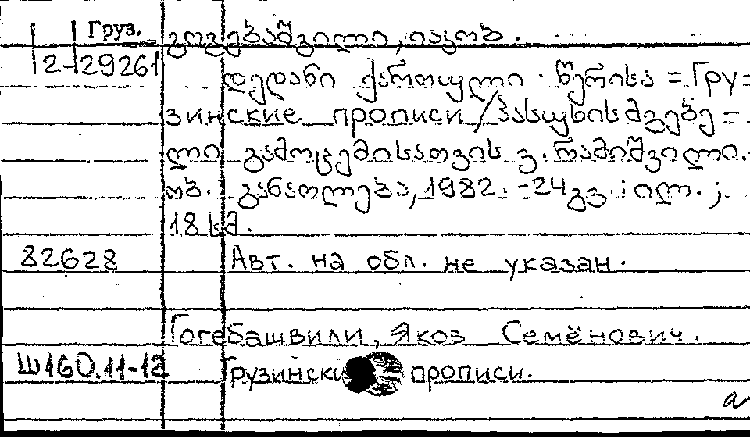 Груз.
2-29261
გოგებაშვილი, იაკობ.
დედანი ქართული წერისა = Гру=
зинские прописи / პასუხისმგებე=
ლი გამოცემისათვის ვ. რამიშვილი.
თბ. განათლება, 1982. - 24 გვ. : ილ. ;
18 სმ.
82628
Авт. на обл. не указан.
Гогебашвили, Якоб Семёнович.
Ш160.11-12
Грузински прописи.